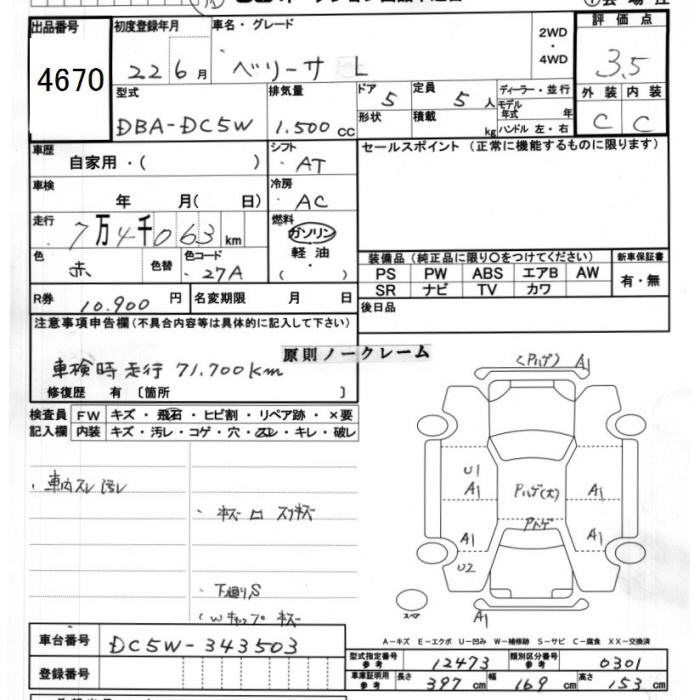 出品番号
4670
初度登録年月
22 6月
車名・グレード
ベリーサ L
2WD
・
4WD
評価点
3.5
外装 内装
C C
型式
DBA-DC5W
排気量
1.500 cc
ドア 5
形状
定員 5 人
積載 kg
ディーラー・並行
モデル年式 年
ハンドル 左・右
車歴
自家用・( )
シフト
・AT
セールスポイント (正常に機能するものに限ります)
車検
年 月( 日)
冷房
・AC
走行
7万4千063km
燃料
ガソリン
軽油
・( )
色
赤
色替
色コード
・27A
装備品 (純正品に限り○をつけてください)
PS PW ABS エアB AW
SR ナビ TV カワ
新車保証書
有・無
R券 10.900円
名変期限 月 日
後日品
注意事項申告欄 (不具合内容等は具体的に記入して下さい)
車検時走行 71.700km
修復歴 有 〔箇所 〕
原則ノークレーム
検査員記入欄
FW キズ・飛石・ヒビ割・リペア跡・×要
内装 キズ・汚レ・コゲ・穴・スレ・キレ・破レ
・車内スレ汚レ
・キズ凹スリキズ
・下廻リS
(Pハゲ) A1
U1
A1
Pハゲ(大)
A1
A1
Pハゲ
A1
U2
A1
スペア
A-キズ E-エクボ U-凹み W-補修跡 S-サビ C-腐食 XX-交換済
車台番号
DC5W-343503
登録番号
型式指定番号 参考 12473
類別区分番号 参考 0301
車庫証明用 参考
長さ 397cm
幅 169cm
高さ 153cm